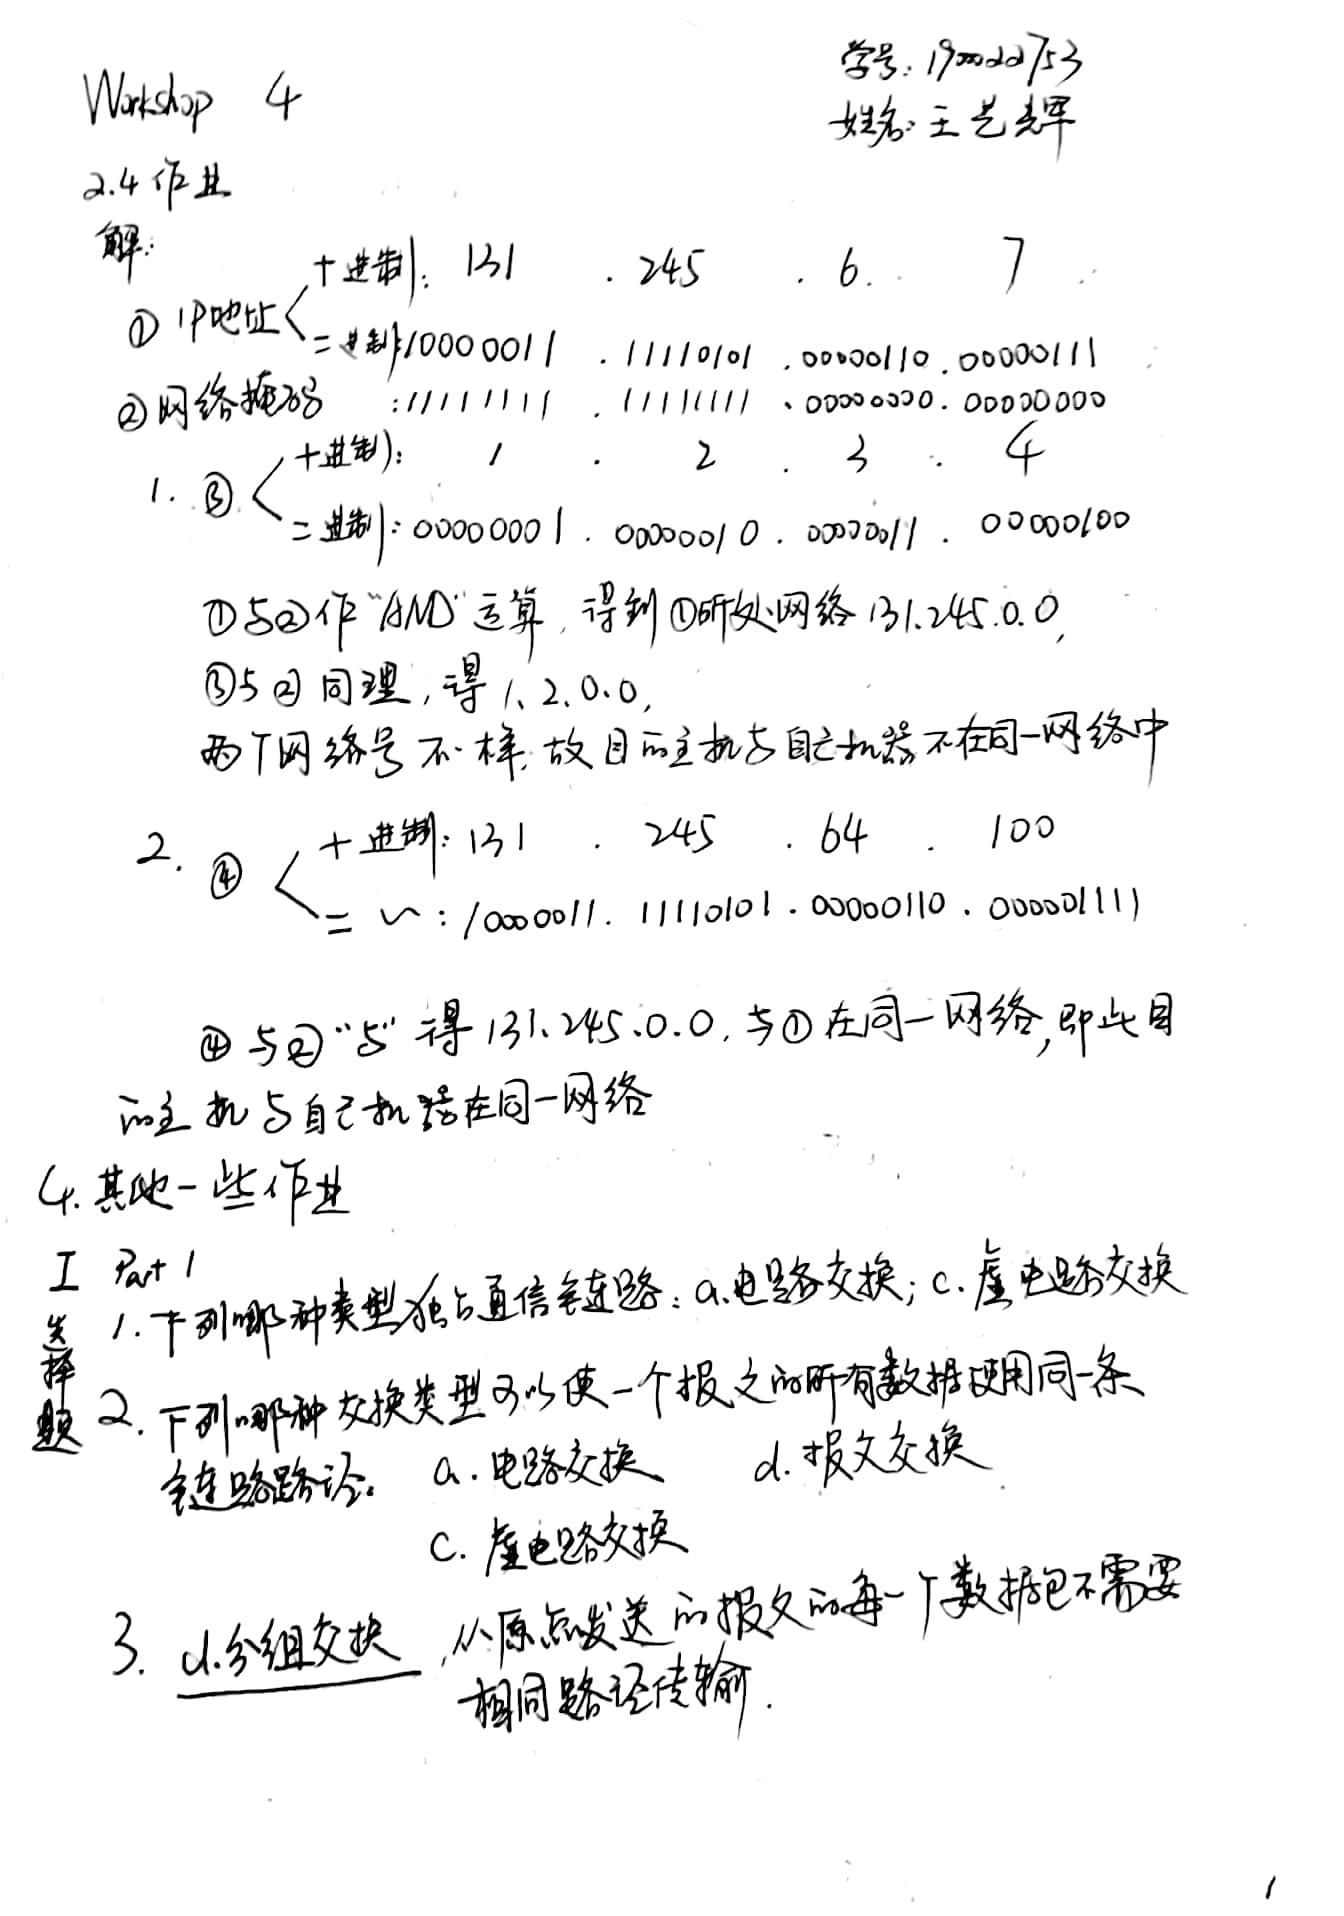 学号: 190022753
Workshop 4
姓名: 王艺辉
2.4 作业
解:
十进制: 131 . 245 . 6 . 7
① IP地址
二进制: 10000011 . 11110101 . 00000110 . 00000111
② 网络掩码 : 11111111 . 11111111 . 00000000 . 00000000
十进制: 1 . 2 . 3 . 4
1. ③
二进制: 00000001 . 00000010 . 00000011 . 00000100
①与②作“AND”运算, 得到①所处网络 131.245.0.0,
③与②同理, 得 1.2.0.0,
两个网络号不一样, 故目的主机与自己机器不在同一网络中
十进制: 131 . 245 . 64 . 100
2. ④
二 ~ : 10000011 . 11110101 . 00000110 . 000001111
④与②“与”得 131.245.0.0, 与①在同一网络, 即此目
的主机与自己机器在同一网络
4. 其他一些作业
I Part 1
选择题
1. 下列哪种类型独占通信链路: a.电路交换; c.虚电路交换
2. 下列哪种交换类型可以使一个报文的所有数据使用同一条
链路路径。 a.电路交换 d.报文交换
c.虚电路交换
3. d.分组交换, 从原点发送的报文的每一个数据包不需要
相同路径传输.
1